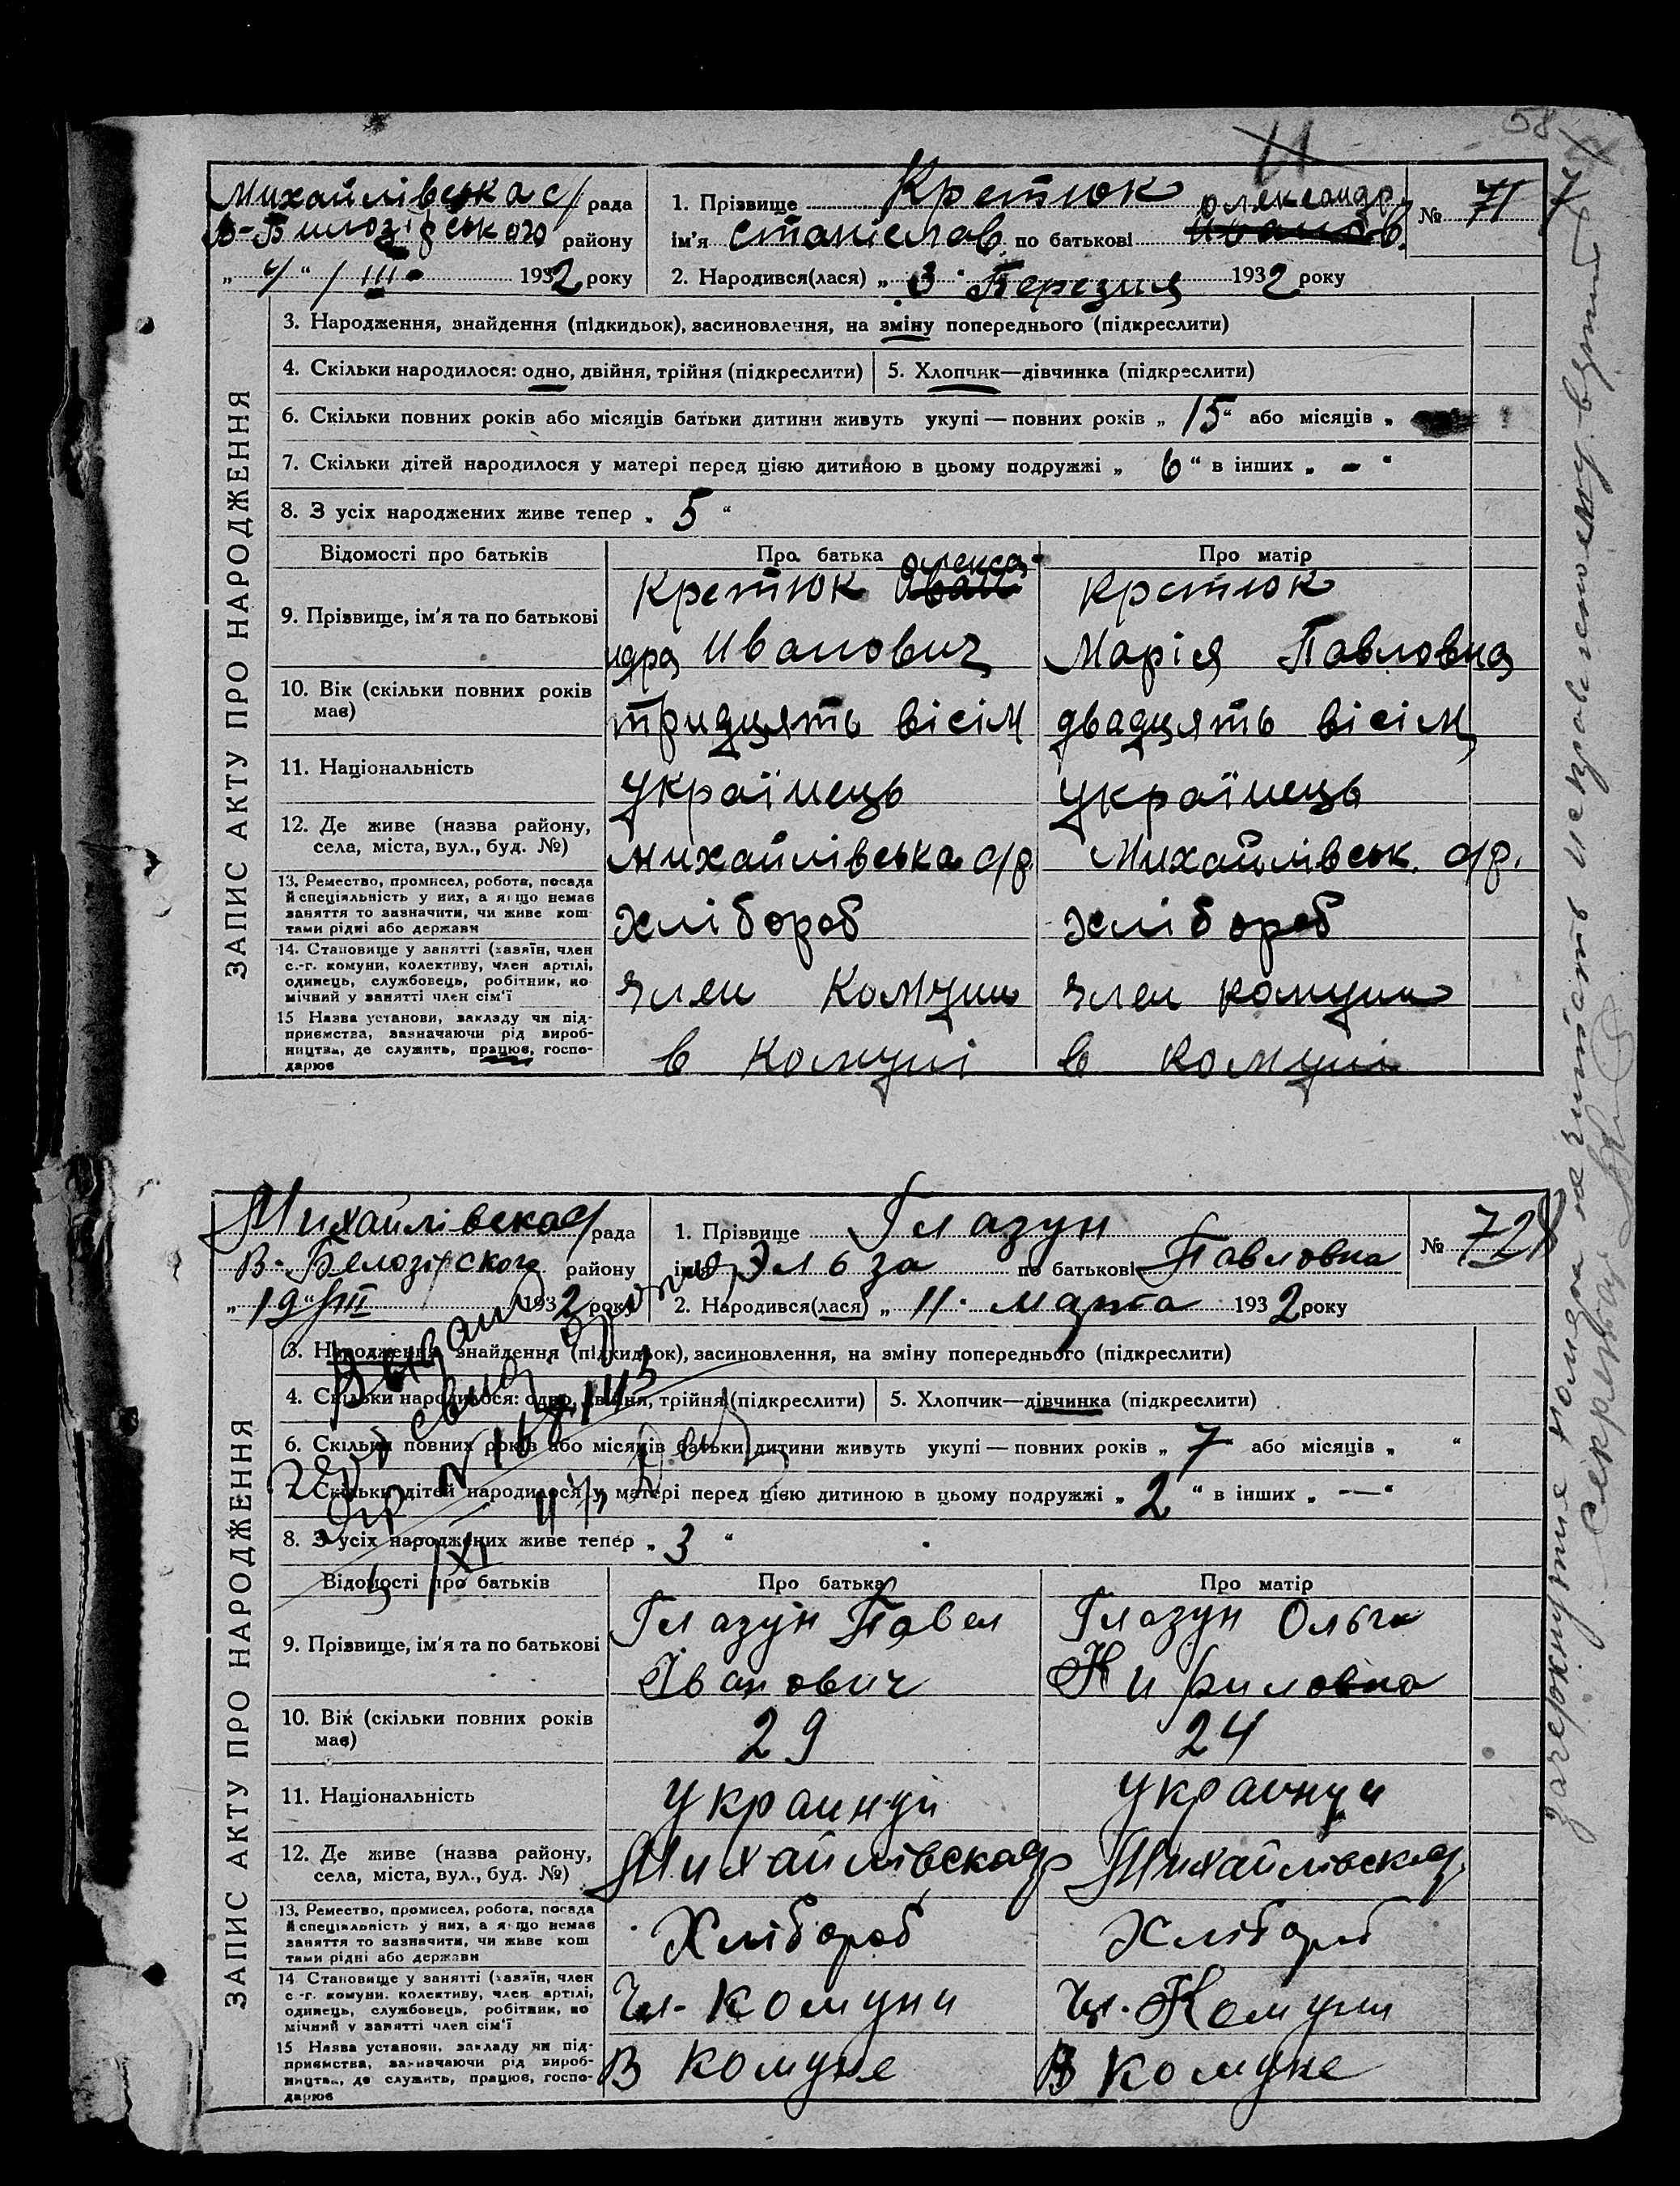 58
Михайлівська с/рада
В-Билозірського району
„ 4 “ / III 1932 року
1. Прізвище Кретюк
олександр.
ім'я станіслав по батькові Иванов.
№ 71
2. Народився(лася) „ 3 “ Березня 1932 року
ЗАПИС АКТУ ПРО НАРОДЖЕННЯ
3. Народження, знайдення (підкидьок), засиновлення, на зміну попереднього (підкреслити)
4. Скільки народилося: одно, двійня, трійня (підкреслити)
5. Хлопчик—дівчинка (підкреслити)
6. Скільки повних років або місяців батьки дитини живуть укупі — повних років „ 15 “ або місяців „
7. Скільки дітей народилося у матері перед цією дитиною в цьому подружжі „ 6 “ в інших „ - “
8. З усіх народжених живе тепер „ 5 “
Відомості про батьків
Про батька
Про матір
9. Прізвище, ім'я та по батькові
олекса
Кретюк Иван
ндра Иванович
Кретюк
Марія Павловна
10. Вік (скільки повних років
має)
тридцять вісім
двадцять вісім
11. Національність
українець
українець
12. Де живе (назва району,
села, міста, вул., буд. №)
Михайлівська с/р
Михайлівськ. с/р.
13. Ремество, промисел, робота, посада
й спеціяльність у них, а якщо немає
заняття то зазначити, чи живе кош
тами рідні або держави
хлібороб
хлібороб
14. Становище у занятті (хазяїн, член
с.-г. комуни, колективу, член артілі,
одинець, службовець, робітник, по
мічний у занятті член сім'ї
член комуни
член комуни
15 Назва установи, закладу чи під-
приємства, зазначаючи рід вироб-
ництва, де служить, працює, госпо-
дарює
в комуні
в комуні
Михайлівска с/рада
В-Белозірского району
„ 19 “ / III 1932 року
1. Прізвище Глазун
ім'я Эльза по батькові Павловна
№ 728
2. Народився(лася) „ 11 “ марта 1932 року
ЗАПИС АКТУ ПРО НАРОДЖЕННЯ
3. Народження, знайдення (підкидьок), засиновлення, на зміну попереднього (підкреслити)
4. Скільки народилося: одно, двійня, трійня (підкреслити)
5. Хлопчик—дівчинка (підкреслити)
6. Скільки повних років або місяців батьки дитини живуть укупі — повних років „ 7 “ або місяців „ “
7. Скільки дітей народилося у матері перед цією дитиною в цьому подружжі „ 2 “ в інших „ — “
8. З усіх народжених живе тепер „ 3 “
Відомості про батьків
Про батька
Про матір
9. Прізвище, ім'я та по батькові
Глазун Павел
Іванович
Глазун Ольга
Кириловна
10. Вік (скільки повних років
має)
29
24
11. Національність
Украинци
Украинци
12. Де живе (назва району,
села, міста, вул., буд. №)
Михайлівска с/р
Михайлівска с/р
13. Ремество, промисел, робота, посада
й спеціяльність у них, а якщо немає
заняття то зазначити, чи живе кош
тами рідні або держави
Хлібороб
Хлібороб
14 Становище у занятті (хазяїн, член
с.-г. комуни. колективу, член артілі,
одинець, службовець, робітник, по
мічний у занятті член сім'ї
Чл. комуни
Чл. Комуни
15 Назва установи, закладу чи під-
приємства, зазначаючи рід вироб-
ництва, де служить, працює, госпо-
дарює
В комуне
В комуне